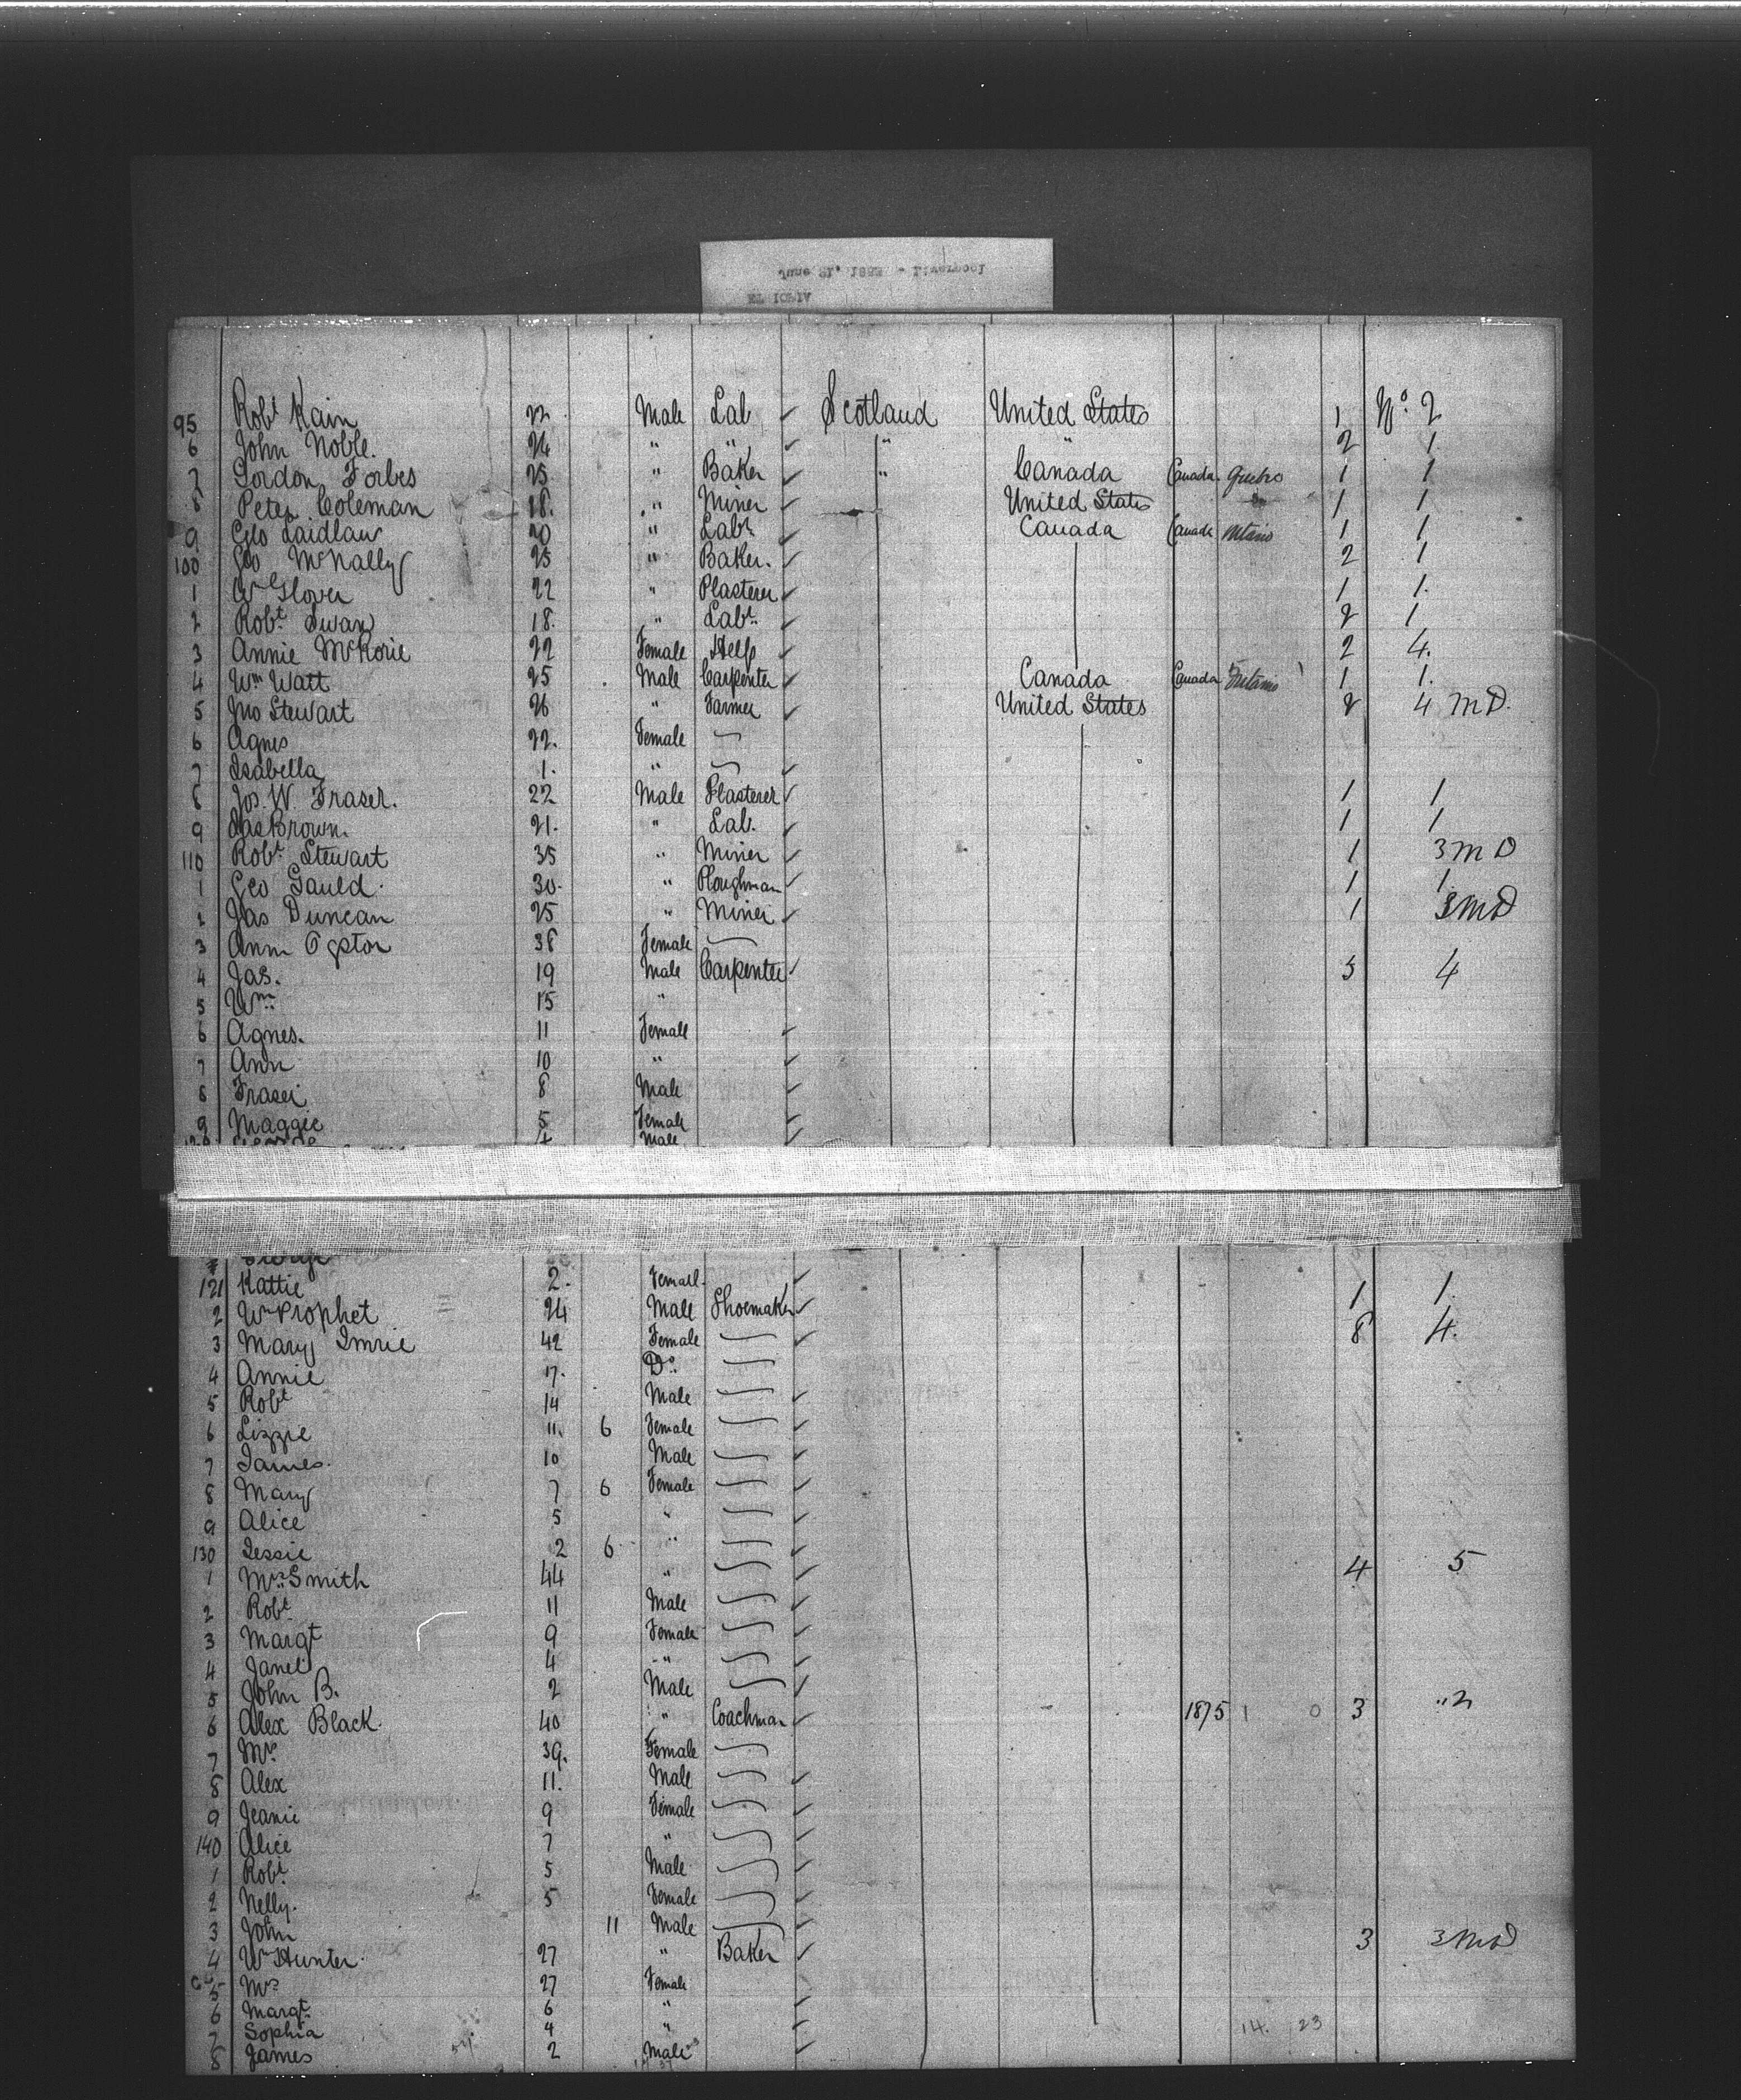 95 Robt Kain 22 Male Lab Scotland United States 1 No. 2
6 John Noble. 24 " " " " 2 1
7 Gordon Forbes 25 " Baker " Canada Canada Quebec 1 1
8 Peter Coleman 18. " Miner United States 1 1
9 Geo Laidlaw 20 " Labr Canada Canada Ontario 1 1
100 Geo McNally 25 " Baker. 2 1
1 Wm Glover 22 " Plasterer 1 1.
2 Robt Swan 18. " Labr. 2 1
3 Annie McKorie 22 Female Help 2 4.
4 Wm Watt 25 Male Carpenter Canada Canada Ontario 1 1.
5 Jno Stewart 26 " Farmer United States 2 4 MD.
6 Agnes 22. Female
7 Isabella 1. "
8 Jos. W. Fraser. 22 Male Plasterer 1 1
9 Jas Brown. 21. " Lab. 1 1
110 Robt Stewart 35 " Miner 1 3 MD
1 Geo Gauld. 30. " Ploughman 1 1.
2 Jas Duncan 25 " Miner 1 3 MD
3 Ann Ogston 38 Female
4 Jas. 19 Male Carpenter 3 4
5 Wm 15 "
6 Agnes. 11 Female
7 Ann 10 "
8 Fraser 8 Male
9 Maggie 5 Female
120 George 4 Male
121 Kattie 2. Femal. 1 1.
2 Wm Prophet 24 Male Shoemaker 8 4.
3 Mary Imrie 42 Female
4 Annie 17. Do.
5 Robt 14 Male
6 Lizzie 11. 6 Female
7 James. 10 Male
8 Mary 7 6 Female
9 Alice 5 "
130 Jessie 2 6 " 4 5
1 Mrs Smith 44 "
2 Robt 11 Male
3 Margt 9 Female
4 Janet 4 "
5 John B. 2 Male
6 Alex Black. 40 " Coachman 1875 1 0 3 " 2
7 Mrs 39. Female
8 Alex 11. Male
9 Jeanie 9 Female
140 Alice 7 "
1 Robt. 5 Male
2 Nelly. 5 Female
3 John 11 Male
4 Wm Hunter. 27 " Baker 3 3 MD
5 Mrs 27 Female
6 Margt. 6 "
7 Sophia 4 " 14. 23
8 James 2 Male